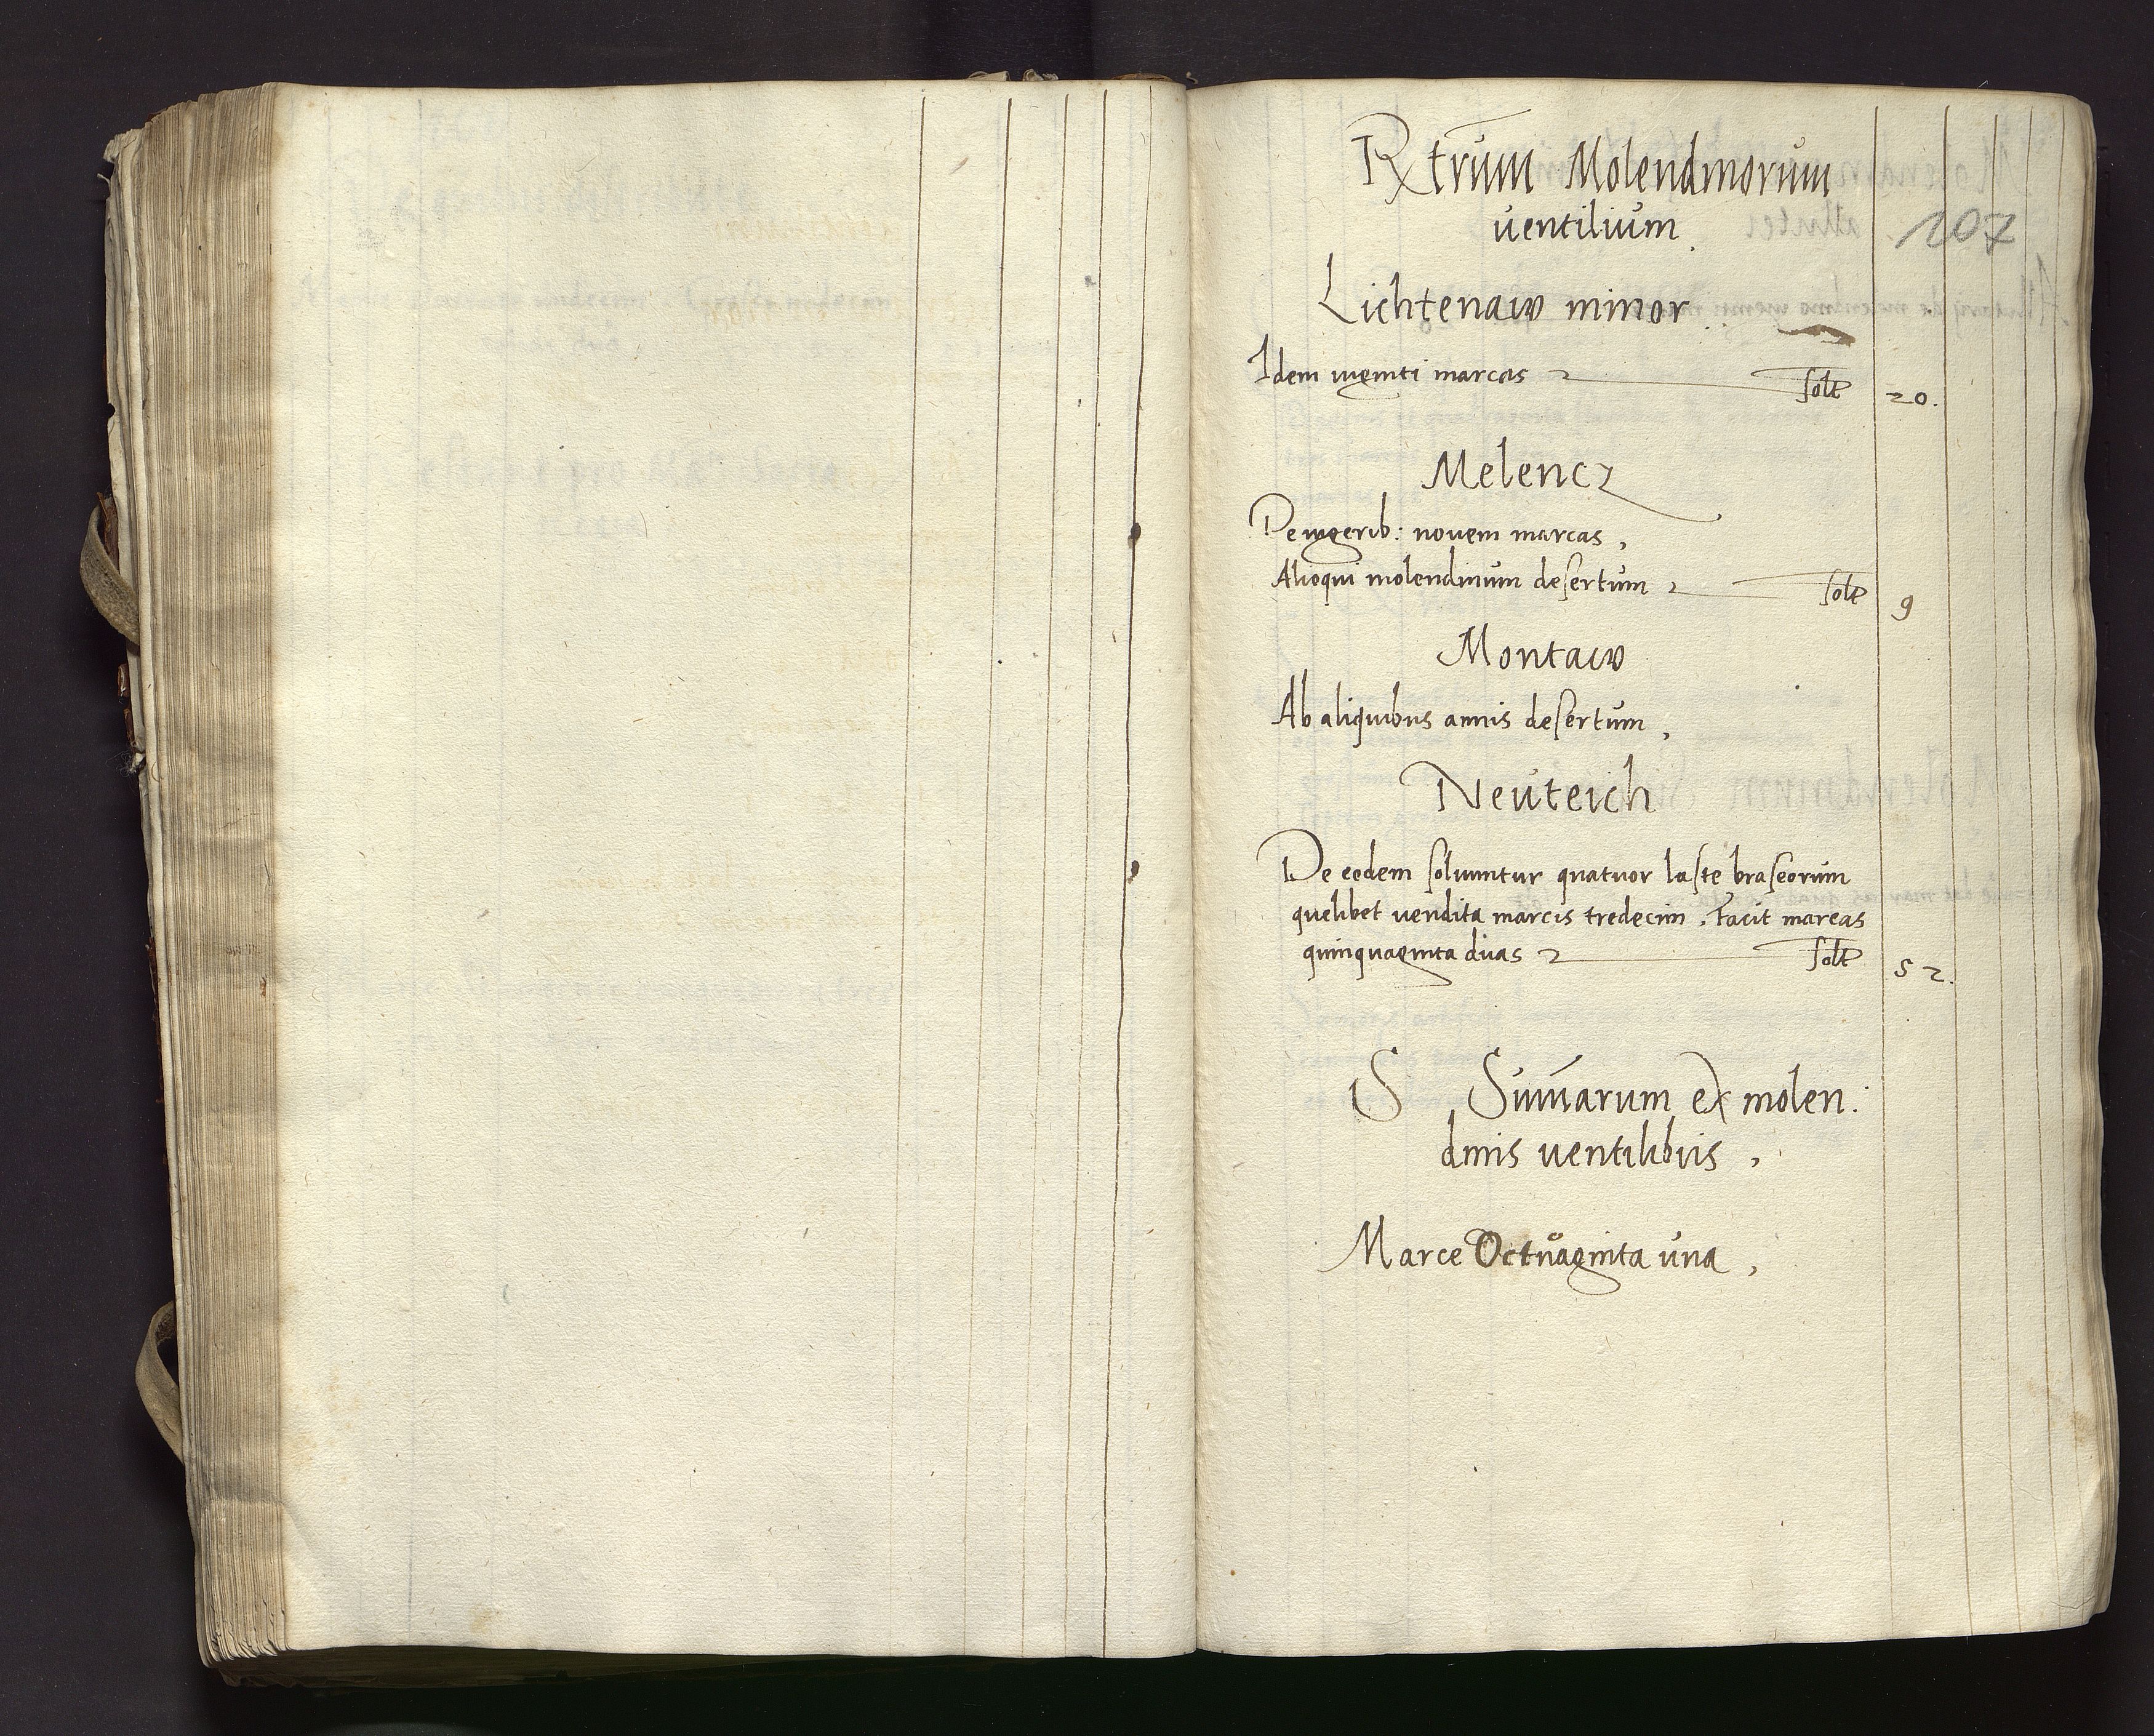 Rx trum Molendinorum
ventilium.
107
Lichtenaw minor.
Idem viginti marcas solt 20.
Melencz
De iugerib: novem marcas,
Alioqui molendinum desertum solt 9
Montaw
Ab aliquibus annis desertum,
Neuteich
De eodem solvuntur quatuor laste braseorum
quelibet vendita marcis tredecim, Facit marcas
quinquaginta duas solt 52.
S, Sumarum ex molen:
dinis ventilibus,
Marce Octuaginta una,